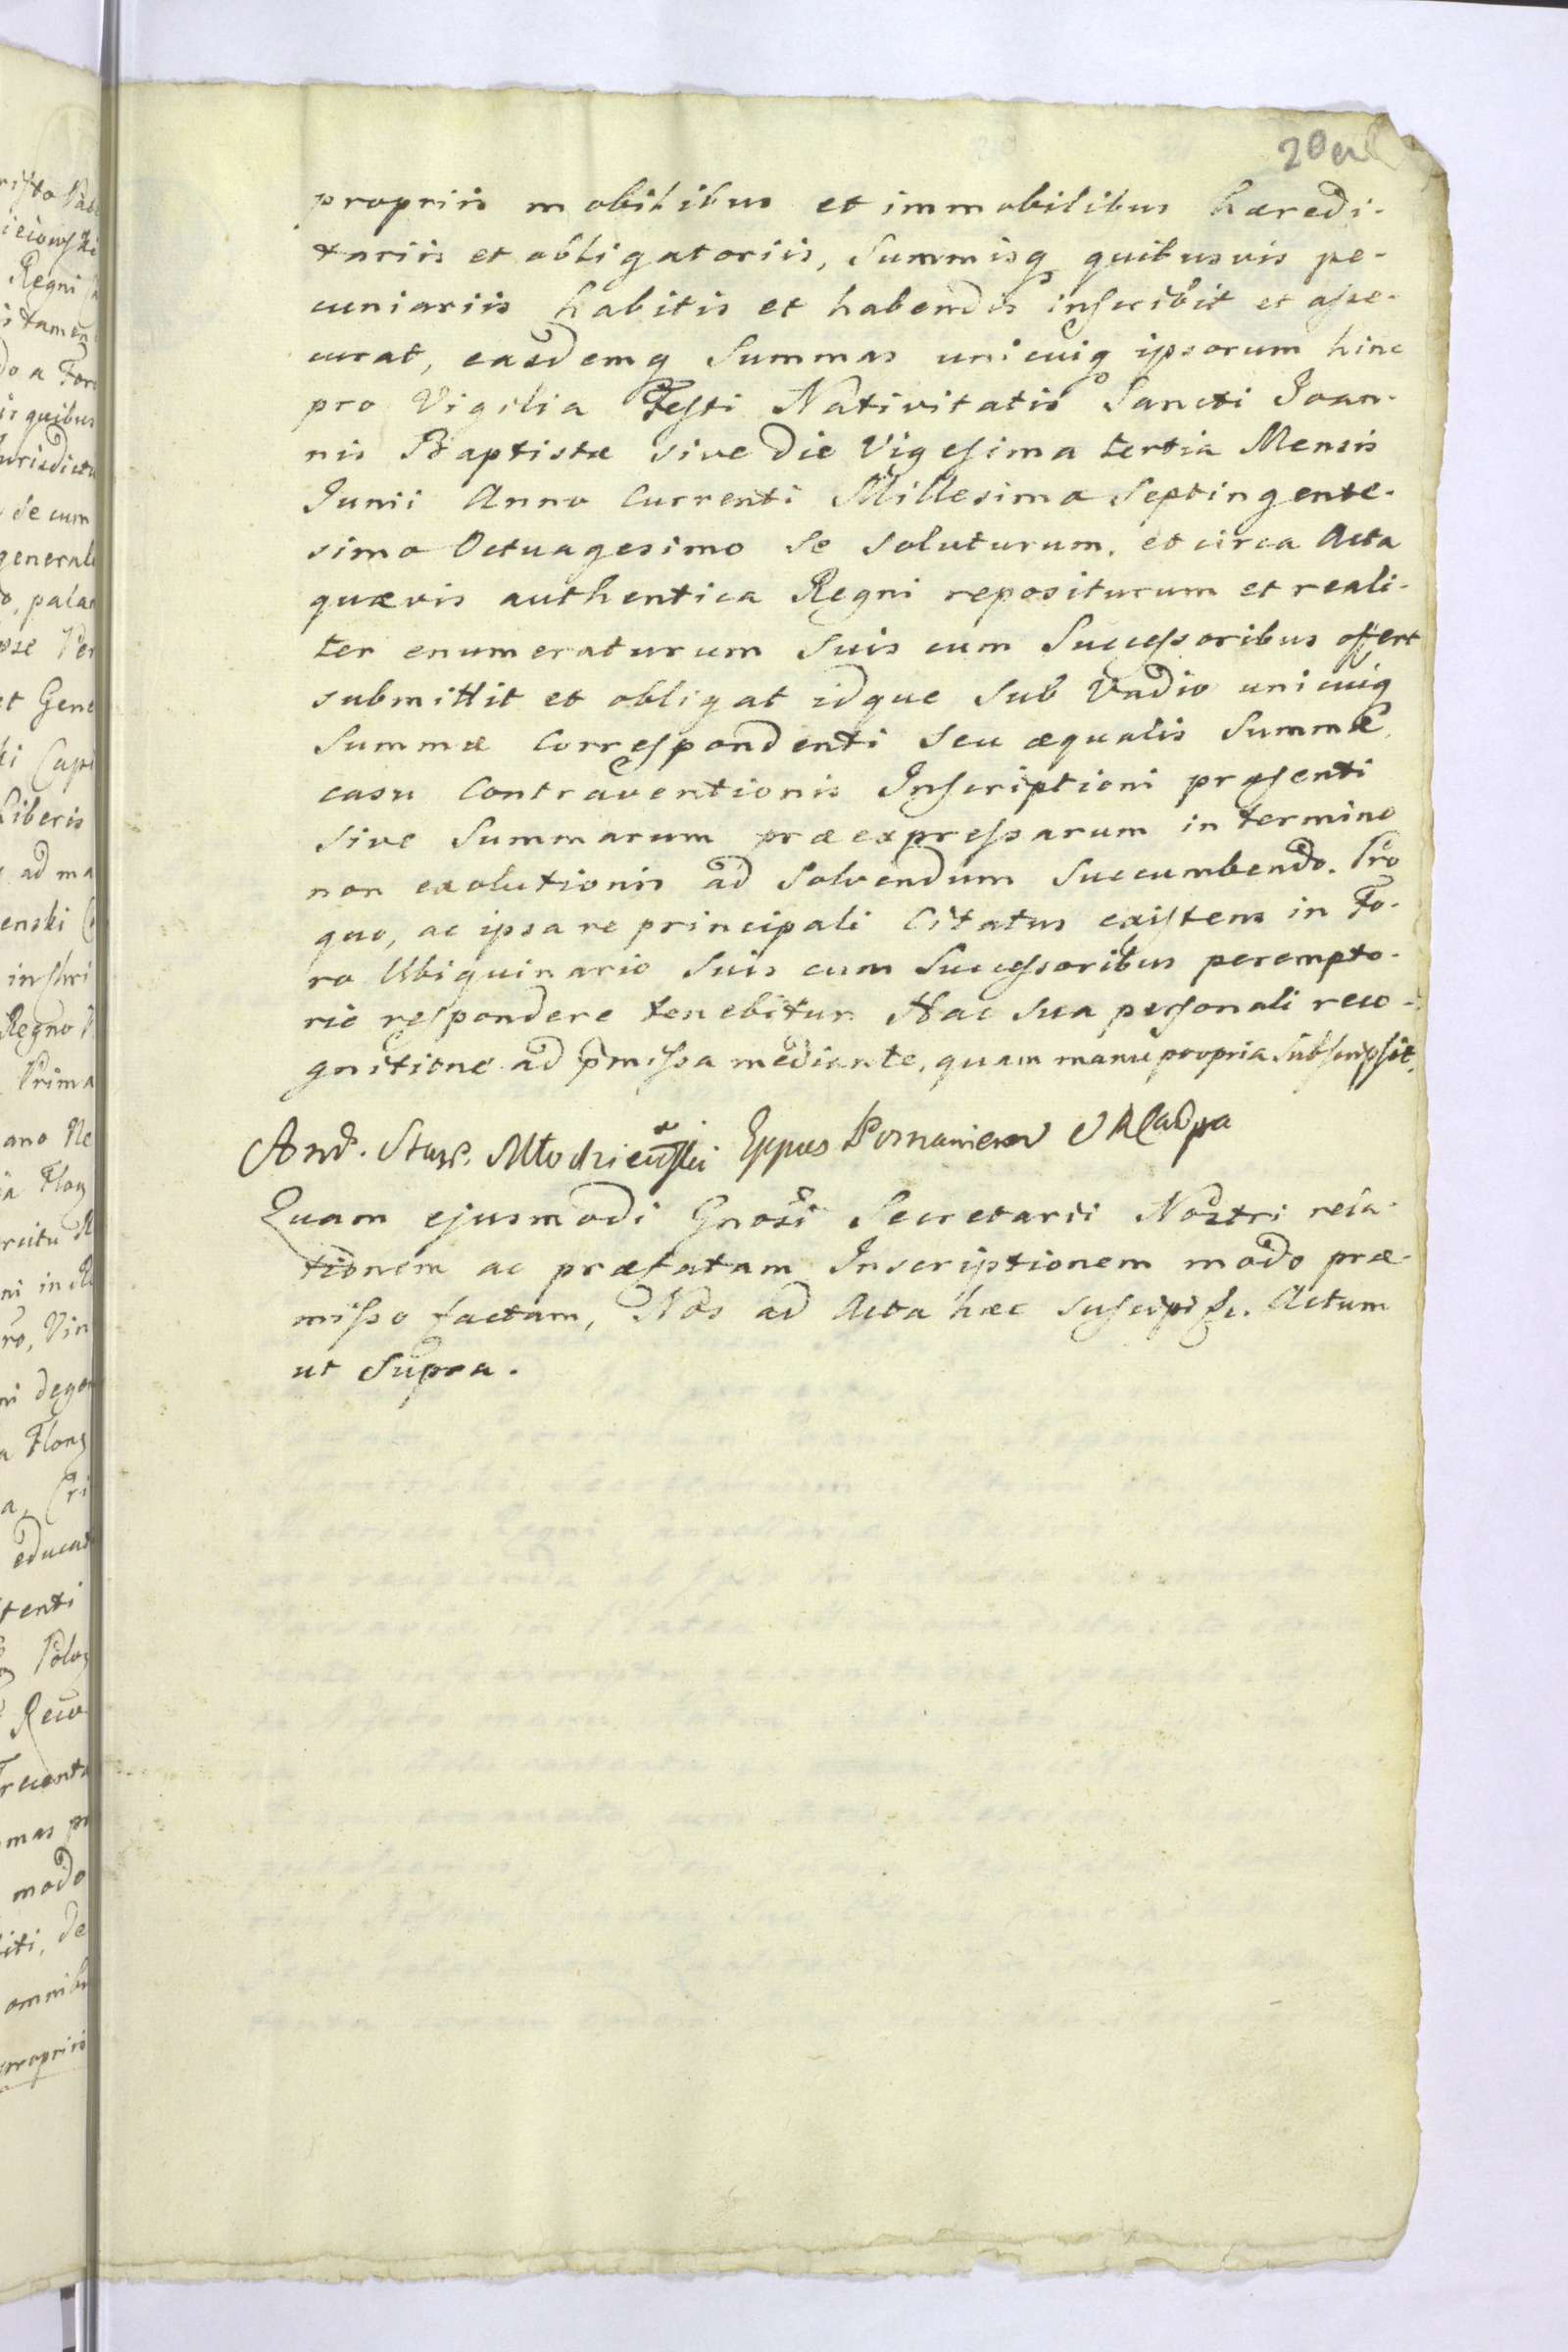 20a
propriis mobilibus et immobilibus hæredi-
tariis et obligatoriis, Summisq quibusvis pe-
cuniariis habitis et habendis inscribit et asse-
curat, easdemq Summas unicuiq ipsorum hinc
pro Vigilia Festi Nativitatis Sancti Joan-
nis Baptistæ sive die Vigesima tertia Mensis
Junii Anno Currenti Millesimo Septingente-
simo Octuagesimo se soluturum, et circa Acta
quævis authentica Regni repositurum et reali-
ter enumeraturum Suis cum Successoribus offert
submittit et obligat idque Sub Vadio unicuiq
Summæ Correspondenti Seu æqualis Summæ,
casu Contraventionis Inscriptioni præsenti
sive Summarum præexpressarum in termino
non exolutionis ad Solvendum Succumbendo. Pro
quo, ac ipsa re principali Citatus existens in Fo-
ro Ubiquinario Suis cum Successoribus perempto-
rie respondere tenebitur Hac Sua personali reco-
gnitione ad pmissa mediante, quam manu propria Subscripsit.
And. Stan. Młodzieiowski Eppus Posnaniens
Quam ejusmodi Gnosi Secretarii Nostri rela-
tionem ac præfatam Inscriptionem modo præ-
misso factam, Nos ad Acta hæc Suscepisse. Actum
ut Supra.
Regni
quibus
de cum
palam
et Gene
Liberis
ad ma
enski
Regno
Prima
modo
omnibu
propriis